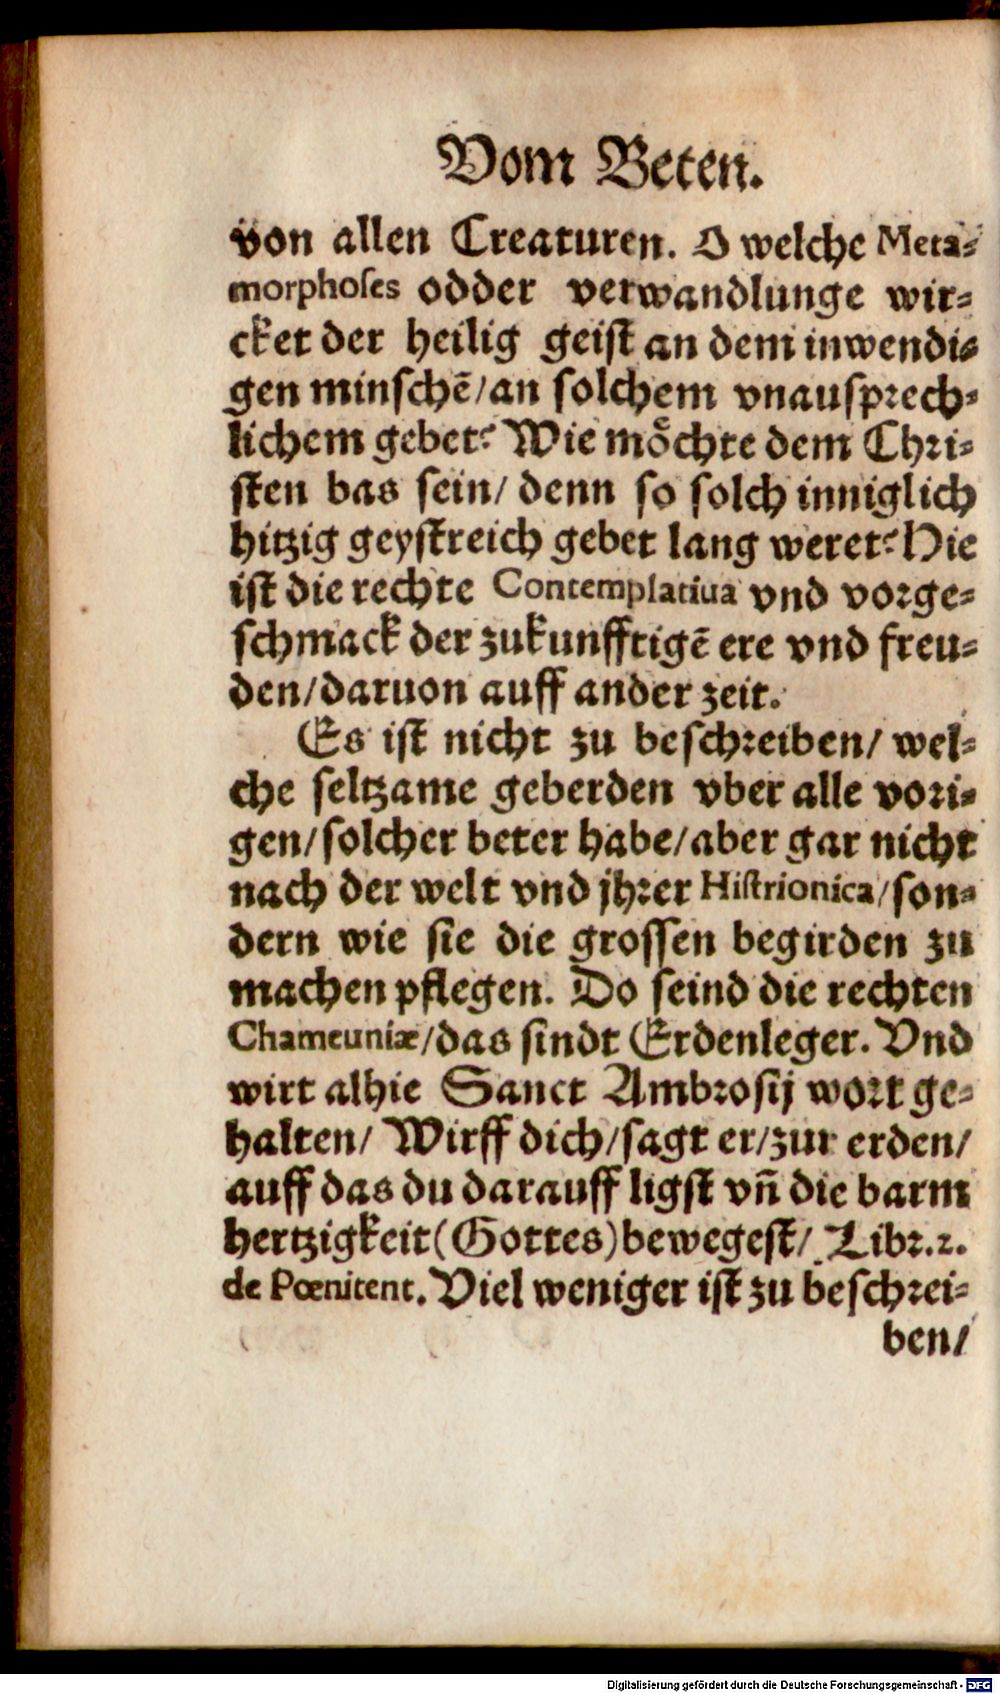 Vom Beten.
von allen Creaturen. O welche Meta-
morphoses odder verwandlunge wir-
cket der heilig geist an dem inwendi-
gen minschē/an solchem vnausprech-
lichem gebet? Wie moͤchte dem Chri-
sten bas sein/ denn so solch inniglich
hitzig geystreich gebet lang weret? Hie
ist die rechte Contemplatiua vnd vorge-
schmack der zukunfftigē ere vnd freu-
den/daruon auff ander zeit.
Es ist nicht zu beschreiben/ wel-
che seltzame geberden vber alle vori-
gen/solcher beter habe/aber gar nicht
nach der welt vnd jhrer Histrionica/son-
dern wie sie die grossen begirden zu
machen pflegen. Do seind die rechten
Chameuniæ/das sindt Erdenleger. Vnd
wirt alhie Sanct Ambrosij wort ge-
halten/ Wirff dich/sagt er/zur erden/
auff das du darauff ligst vn̄ die barm
hertzigkeit(Gottes)bewegest/ Libr.2.
de Pœnitent. Viel weniger ist zu beschrei-
ben/
Digitalisierung gefördert durch die Deutsche Forschungsgemeinschaft - DFG